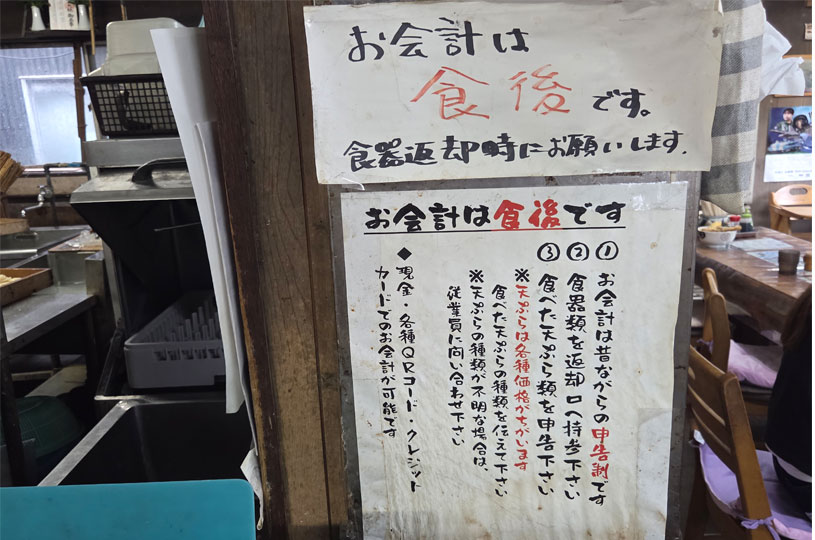 お会計は
食後です。
食器返却時にお願いします.
お会計は食後です
①お会計は昔ながらの申告制です
②食器類を返却口へ持参下さい
③食べた天ぷら類を申告下さい
※天ぷらは各種価格がちがいます
食べた天ぷらの種類を伝えて下さい
※天ぷらの種類が不明な場合は、
従業員に問い合わせ下さい
◆現金・各種QRコード・クレジット
カードでのお会計が可能です